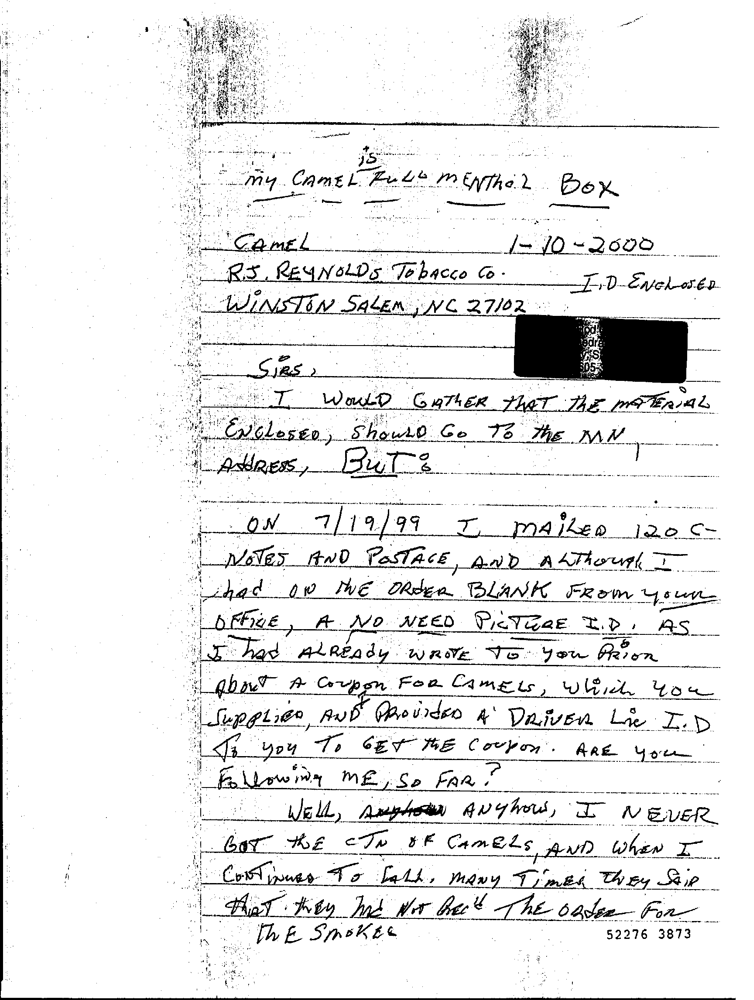 is
my CAMEL FULL MENTHOL BOX
CAMEL 1-10-2000
R.J. REYNOLDS TOBACCO CO. I.D ENCLOSED
WINSTON SALEM, NC 27102
SIRS,
I WOULD GATHER THAT THE MATERIAL
ENCLOSED, SHOULD GO TO THE MN
ADDRESS, BUT:
ON 7/19/99 I MAILED 120 C-
NOTES AND POSTAGE, AND ALTHOUGH I
had ON THE ORDER BLANK FROM your
OFFICE, A NO NEED PICTURE I.D. AS
I had ALREADY WROTE TO you PRIOR
About A Coupon FOR CAMELS, which you
SUPPLIED, AND PROVIDED A DRIVER Lic I.D
To you TO GET THE Coupon. ARE you
Following ME, SO FAR?
WELL, ANYHOW, I NEVER
GOT THE CTN OF CAMELS, AND WHEN I
CONTINUED TO CALL, MANY TIMES THEY SAID
THAT they had NOT Rec'd THE ORDER FOR
THE SMOKES
52276 3873